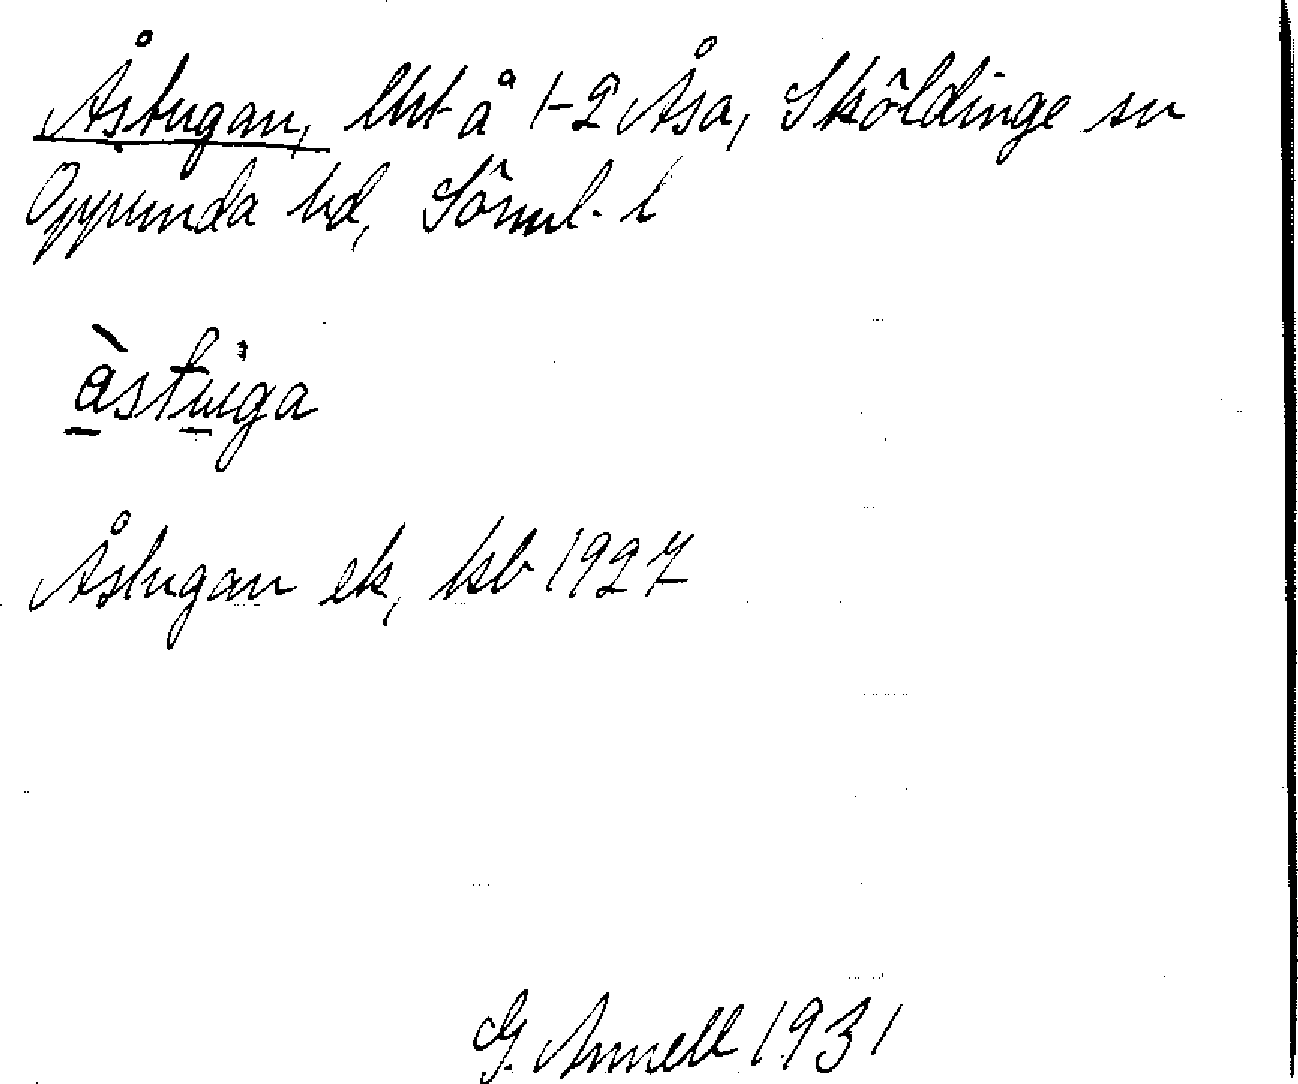 Åstugan, lht å 1-2 Åsa, Sköldinge sn
Oppunda hd, Söml. l
àstuga
Åstugan ek, ksb 1927
G. Annell 1931